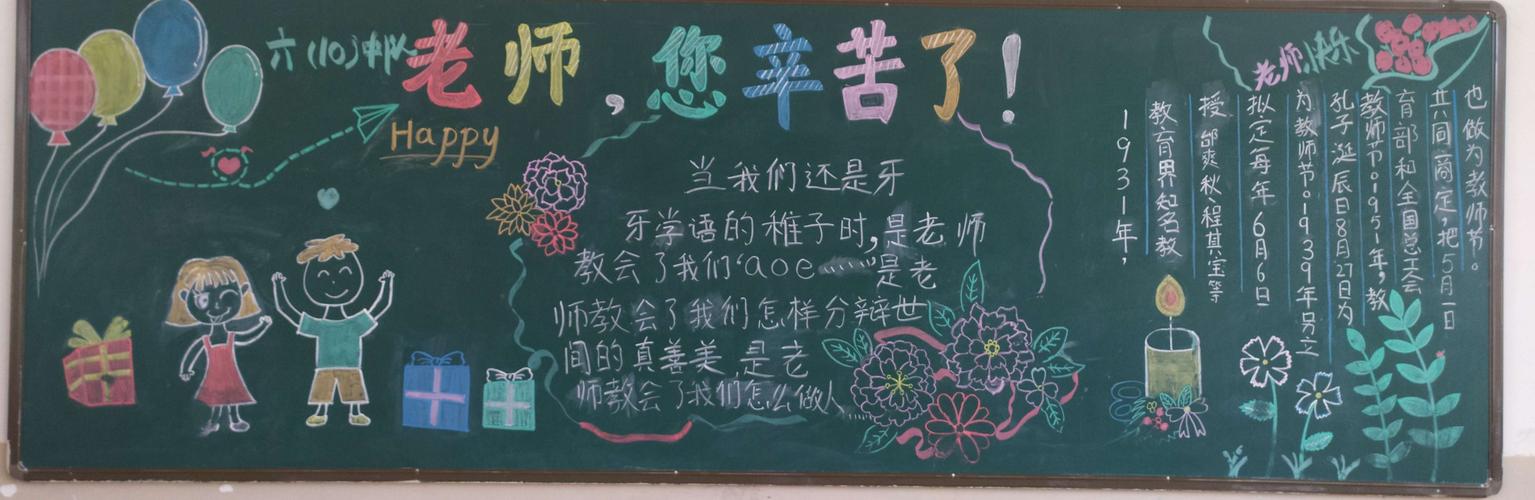 六(10)中队
老师,您辛苦了!
Happy
当我们还是牙
牙学语的稚子时,是老师
教会了我们“aoe……”是老
师教会了我们怎样分辩世
间的真善美,是老
师教会了我们怎么做人……
老师,快乐
1931年，
教育界知名教
授邰爽秋、程其宝等
拟定每年6月6日
为教师节。1939年另之
孔子诞辰日8月27日为
教师节。1951年，教
育部和全国总工会
共同商定把5月一日
也做为教师节。